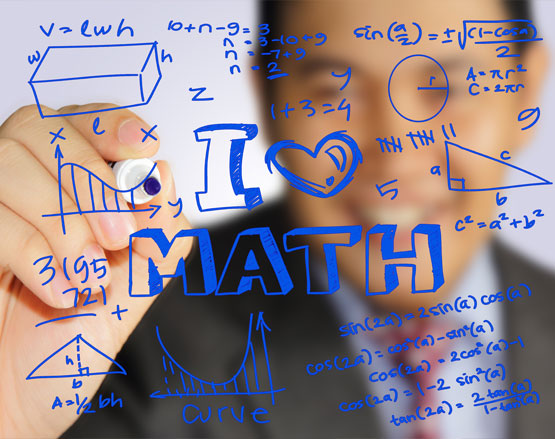 V = lwh
w
h
l
10+n-9=3
n = 3-10+9
n = -7+9
n = 2
sin(a/2) = ±√((1-cosa)/2)
r
A = πr²
C = 2πr
z
y
1+3=4
9
x
x
y
I
5
a
c
b
c² = a² + b²
MATH
3195
721 +
h
b
A = 1/2 bh
curve
sin(2a) = 2sin(a) cos(a)
cos(2a) = cos²(a) - sin²(a)
cos(2a) = 2cos²(a) - 1
cos(2a) = 1-2 sin²(a)
tan(2a) = 2 tan(a)/1-tan²(a)